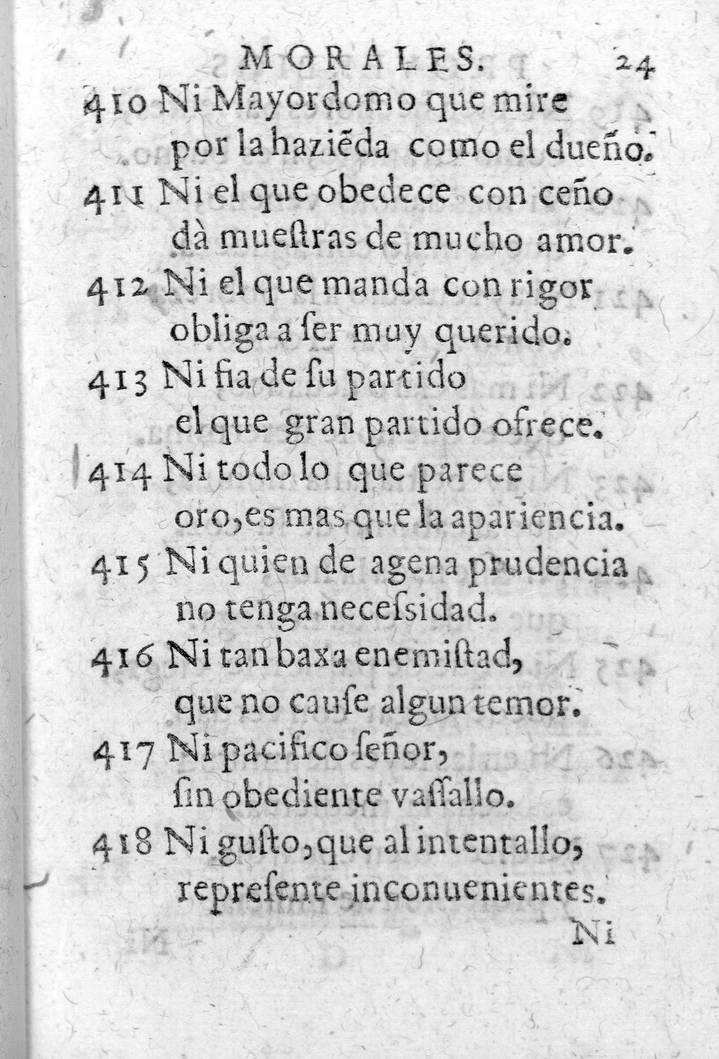 MORALES. 24
410 Ni Mayordomo que mire
por la haziẽda como el dueño.
411 Ni el que obedece con ceño
dà mueſtras de mucho amor.
412 Ni el que manda con rigor
obliga a ſer muy querido.
413 Ni fia de ſu partido
el que gran partido ofrece.
414 Ni todo lo que parece
oro,es mas que la apariencia.
415 Ni quien de agena prudencia
no tenga neceſsidad.
416 Ni tan baxa enemiſtad,
que no cauſe algun temor.
417 Ni pacifico ſeñor,
ſin obediente vaſſallo.
418 Ni guſto,que al intentallo,
repreſente inconuenientes.
Ni